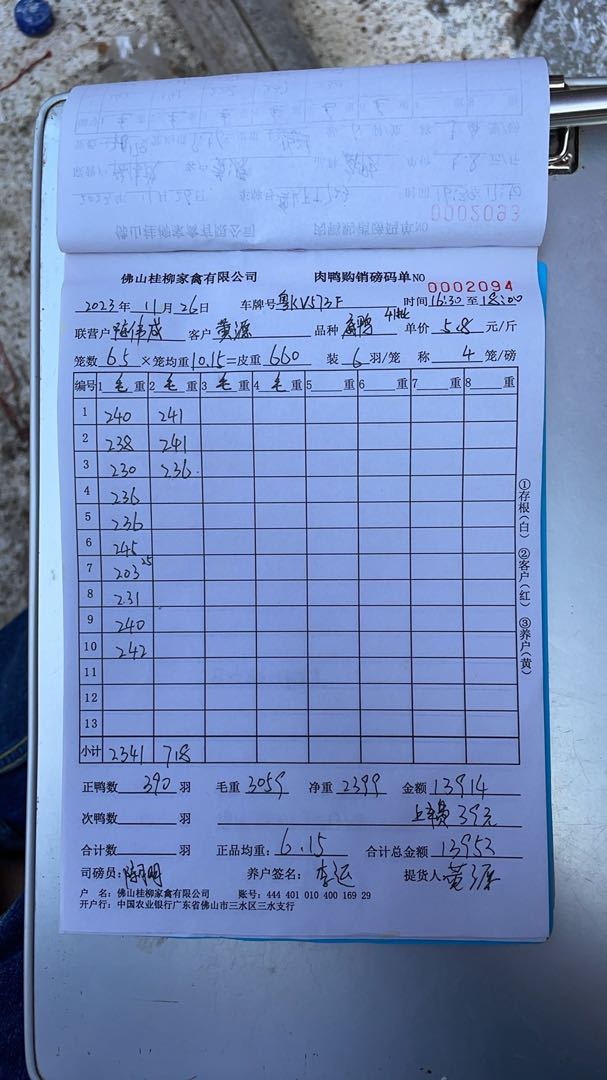 0002093
佛山桂柳家禽有限公司 肉鸭购销磅码单 NO 0002094
2023年 11月 26日 车牌号 粤KV573F 时间 16:30 至 18:00
联营户 陆伟成 客户 黄源 品种 4批 单价 5.8 元/斤
笼数 65 ×笼均重 10.15 =皮重 660 装 6 羽/笼 称 4 笼/磅
编号 1 毛 重 2 毛 重 3 毛 重 4 毛 重 5 重 6 重 7 重 8 重
1 240 241
2 238 241
3 230 236
4 236
5 236
6 245
7 203 25
8 231
9 240
10 242
11
12
13
小计 2341 718
①存根(白) ②客户(红) ③养户(黄)
正鸭数 390 羽 毛重 3059 净重 2399 金额 13914
次鸭数 羽 上车费 39元
合计数 羽 正品均重: 6.15 合计总金额 13953
司磅员: 养户签名: 李运 提货人: 黄源
户 名: 佛山桂柳家禽有限公司 账号: 444 401 010 400 169 29
开户行: 中国农业银行广东省佛山市三水区三水支行